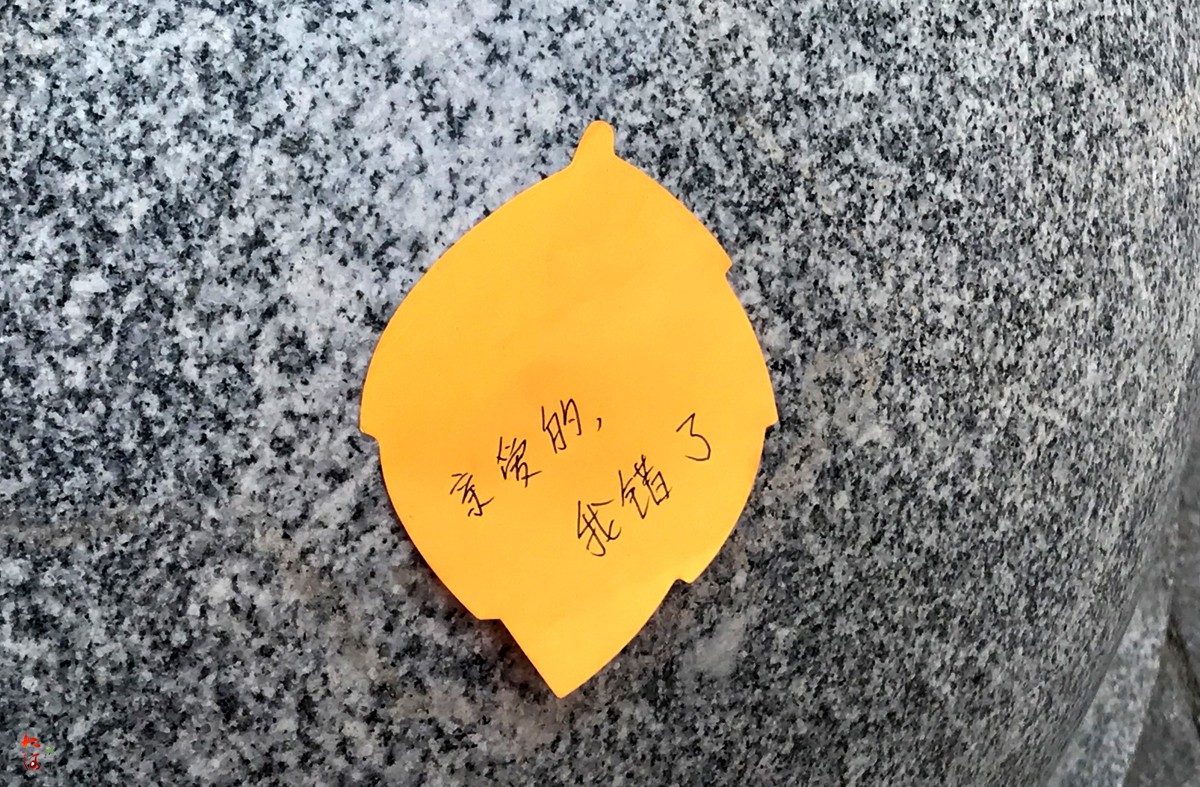 亲爱的,
我错了